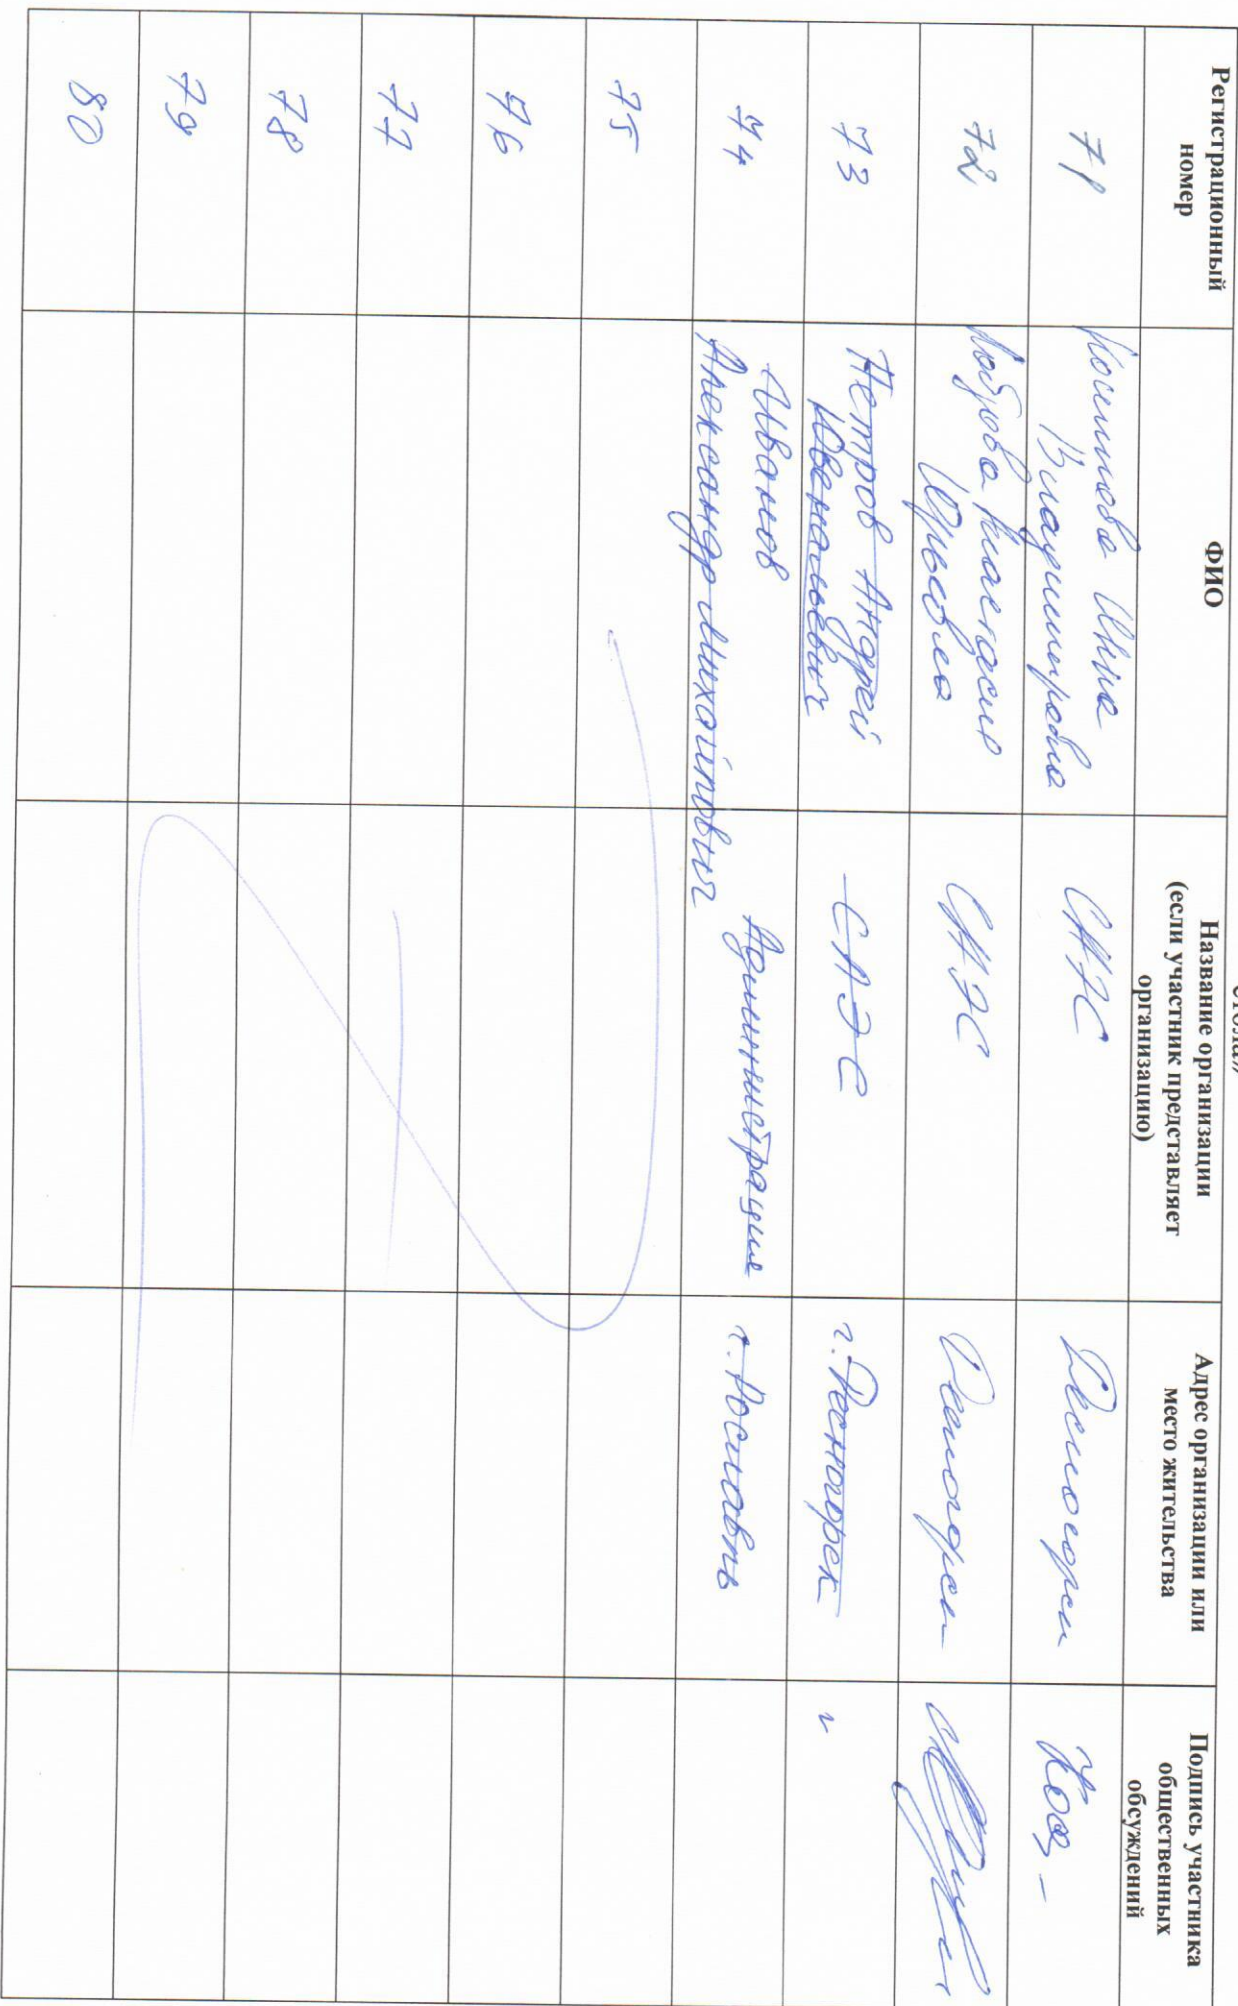 стола»
Регистрационный номер
ФИО
Название организации
(если участник представляет
организацию)
Адрес организации или
место жительства
Подпись участника
общественных
обсуждений
71
Инна
Владимировна
САЭС
Десногорск
72
Анастасия
Юрьевна
САЭС
Десногорск
73
Петров Андрей
Ювенальевич
САЭС
г. Десногорск
74
Иванов
Александр Михайлович
Администрация
г. Рославль
75
76
77
78
79
80